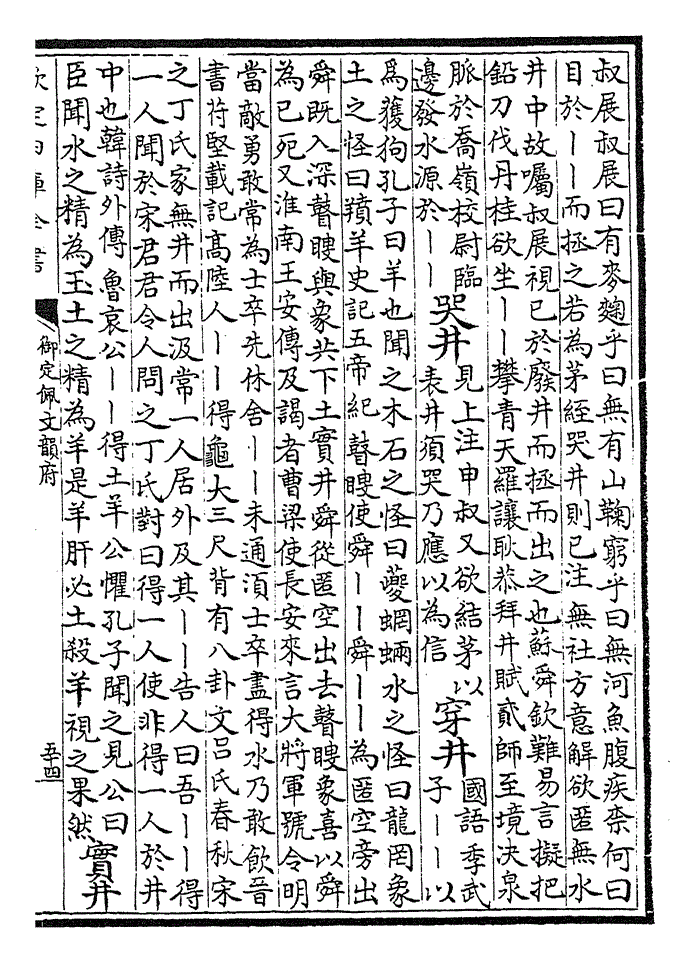 叔展叔展曰有麥麹乎曰無有山鞠窮乎曰無河魚腹疾柰何曰
目於丨丨而拯之若為茅絰哭井則已注無社方意解欲匿無水
井中故囑叔展視已於廢井而拯而出之也蘇舜欽難易言擬把
鉛刀伐丹桂欲坐丨丨攀青天羅讓耿恭拜井賦貳師至境决泉
脈於喬嶺校尉臨
邊發水源於丨丨
哭井
見上注申叔又欲結茅以
表井須哭乃應以為信
穿井
國語季武
子丨丨以
為獲狗孔子曰羊也聞之木石之怪曰夔蝄蜽水之怪曰龍罔象
土之怪曰羵羊史記五帝紀瞽瞍使舜丨丨舜丨丨為匿空旁出
舜既入深瞽瞍與象共下土實井舜從匿空出去瞽瞍象喜以舜
為已死又淮南王安傳及謁者曹梁使長安來言大將軍號令明
當敵勇敢常為士卒先休舍丨丨未通湏士卒盡得水乃敢飲晉
書苻堅載記高陸人丨丨得龜大三尺背有八卦文吕氏春秋宋
之丁氏家無井而出汲常一人居外及其丨丨告人曰吾丨丨得
一人聞於宋君君令人問之丁氏對曰得一人使非得一人於井
中也韓詩外傳魯哀公丨丨得土羊公懼孔子聞之見公曰
臣聞水之精為玉土之精為羊是羊肝必土殺羊視之果然
實井
欽定四庫全書
御定佩文韻府
五十四